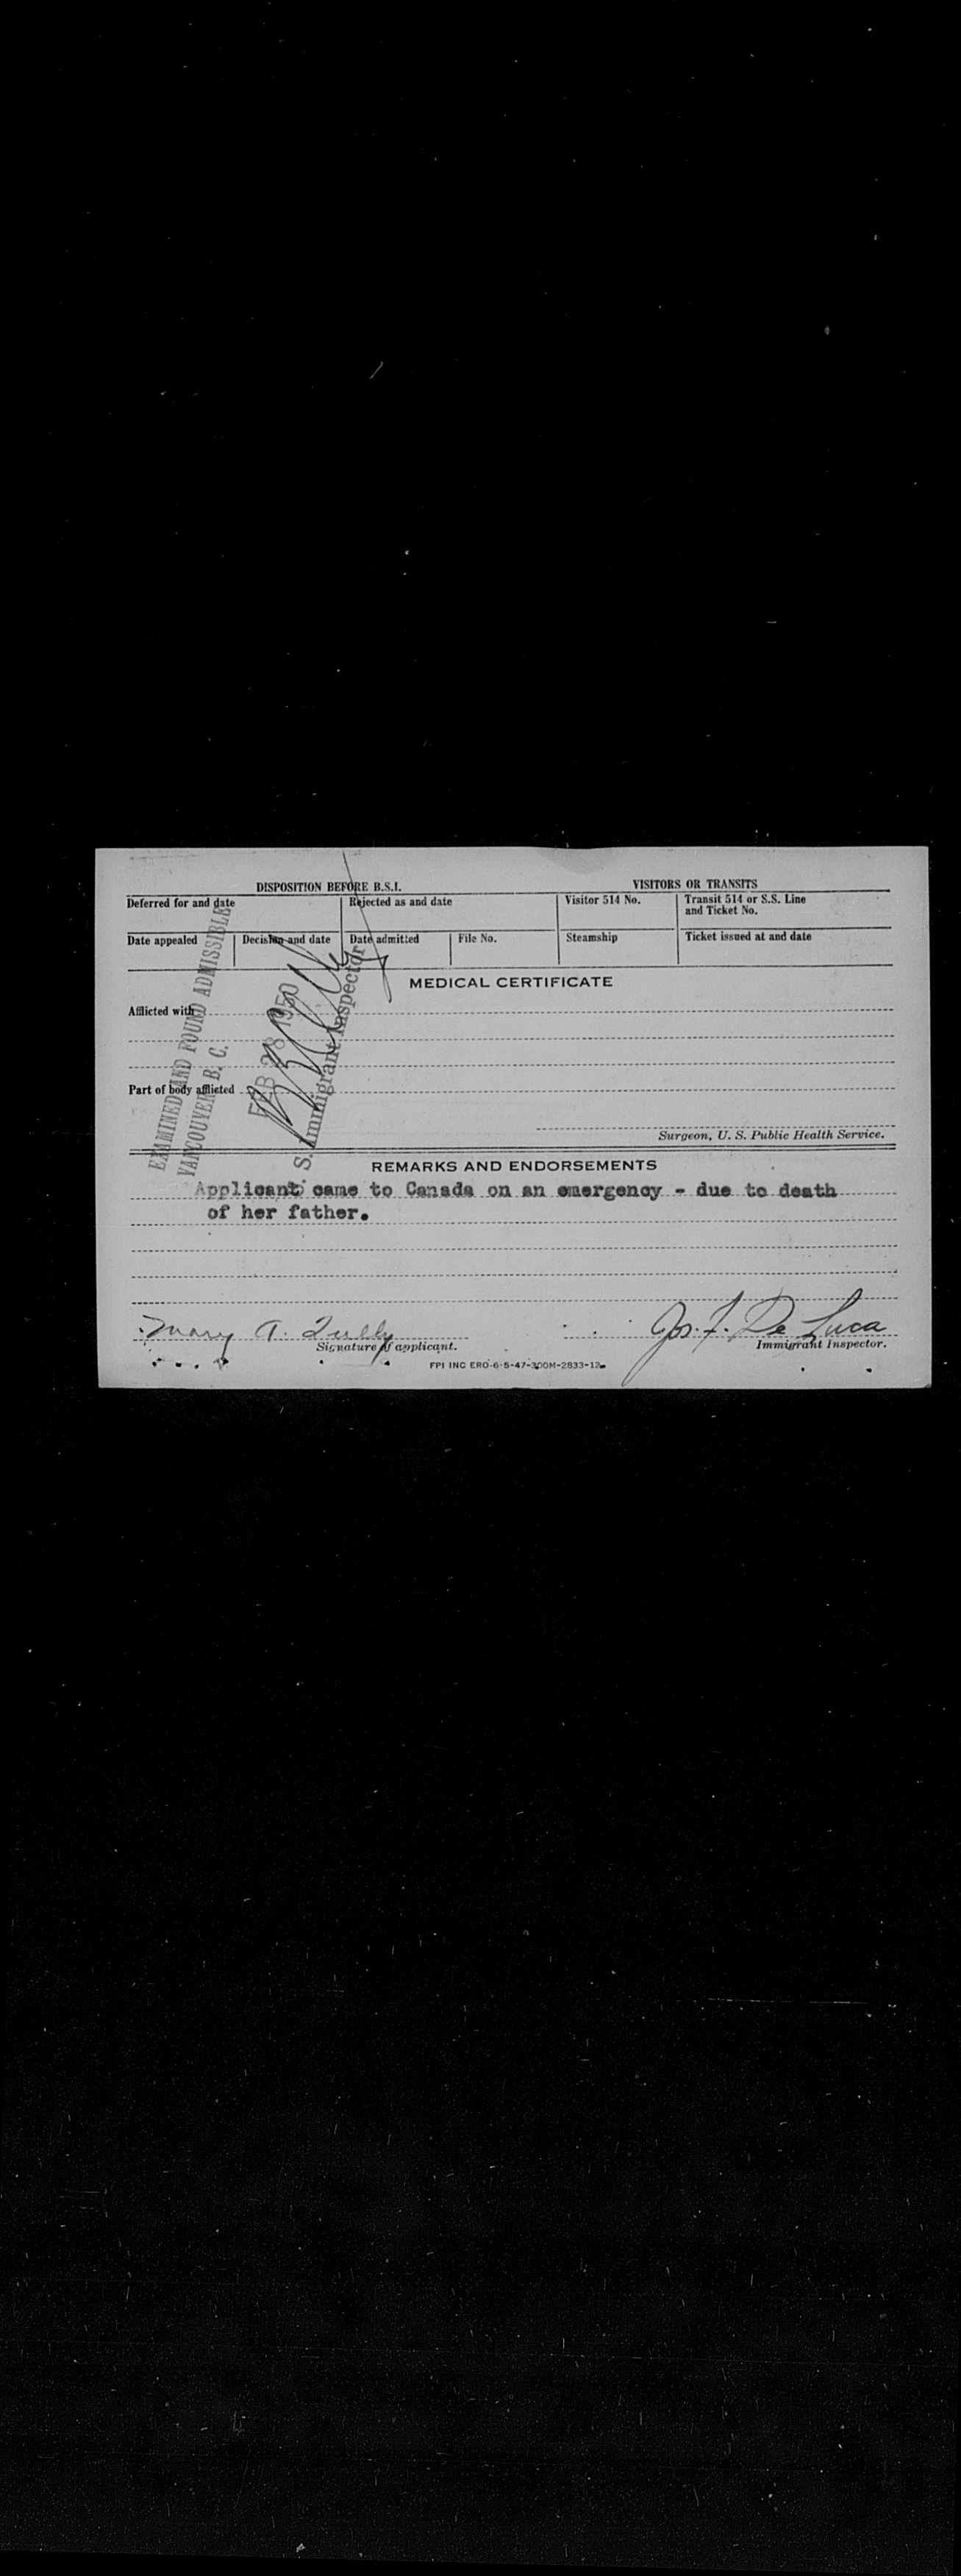 DISPOSITION BEFORE B.S.I. VISITORS OR TRANSITS
Deferred for and date Rejected as and date Visitor 514 No. Transit 514 or S.S. Line and Ticket No.
Date appealed Decision and date Date admitted File No. Steamship Ticket issued at and date
MEDICAL CERTIFICATE
Afflicted with
Part of body afflicted
Surgeon, U. S. Public Health Service.
EXAMINED AND FOUND ADMISSIBLE
VANCOUVER B. C.
FEB 28 1950
S. Immigrant Inspector
REMARKS AND ENDORSEMENTS
Applicant came to Canada on an emergency - due to death
of her father.
Mary A. Tully Jos. F. De Luca
Signature of applicant. Immigrant Inspector.
FPI INC ERO-6-5-47-300M-2833-12